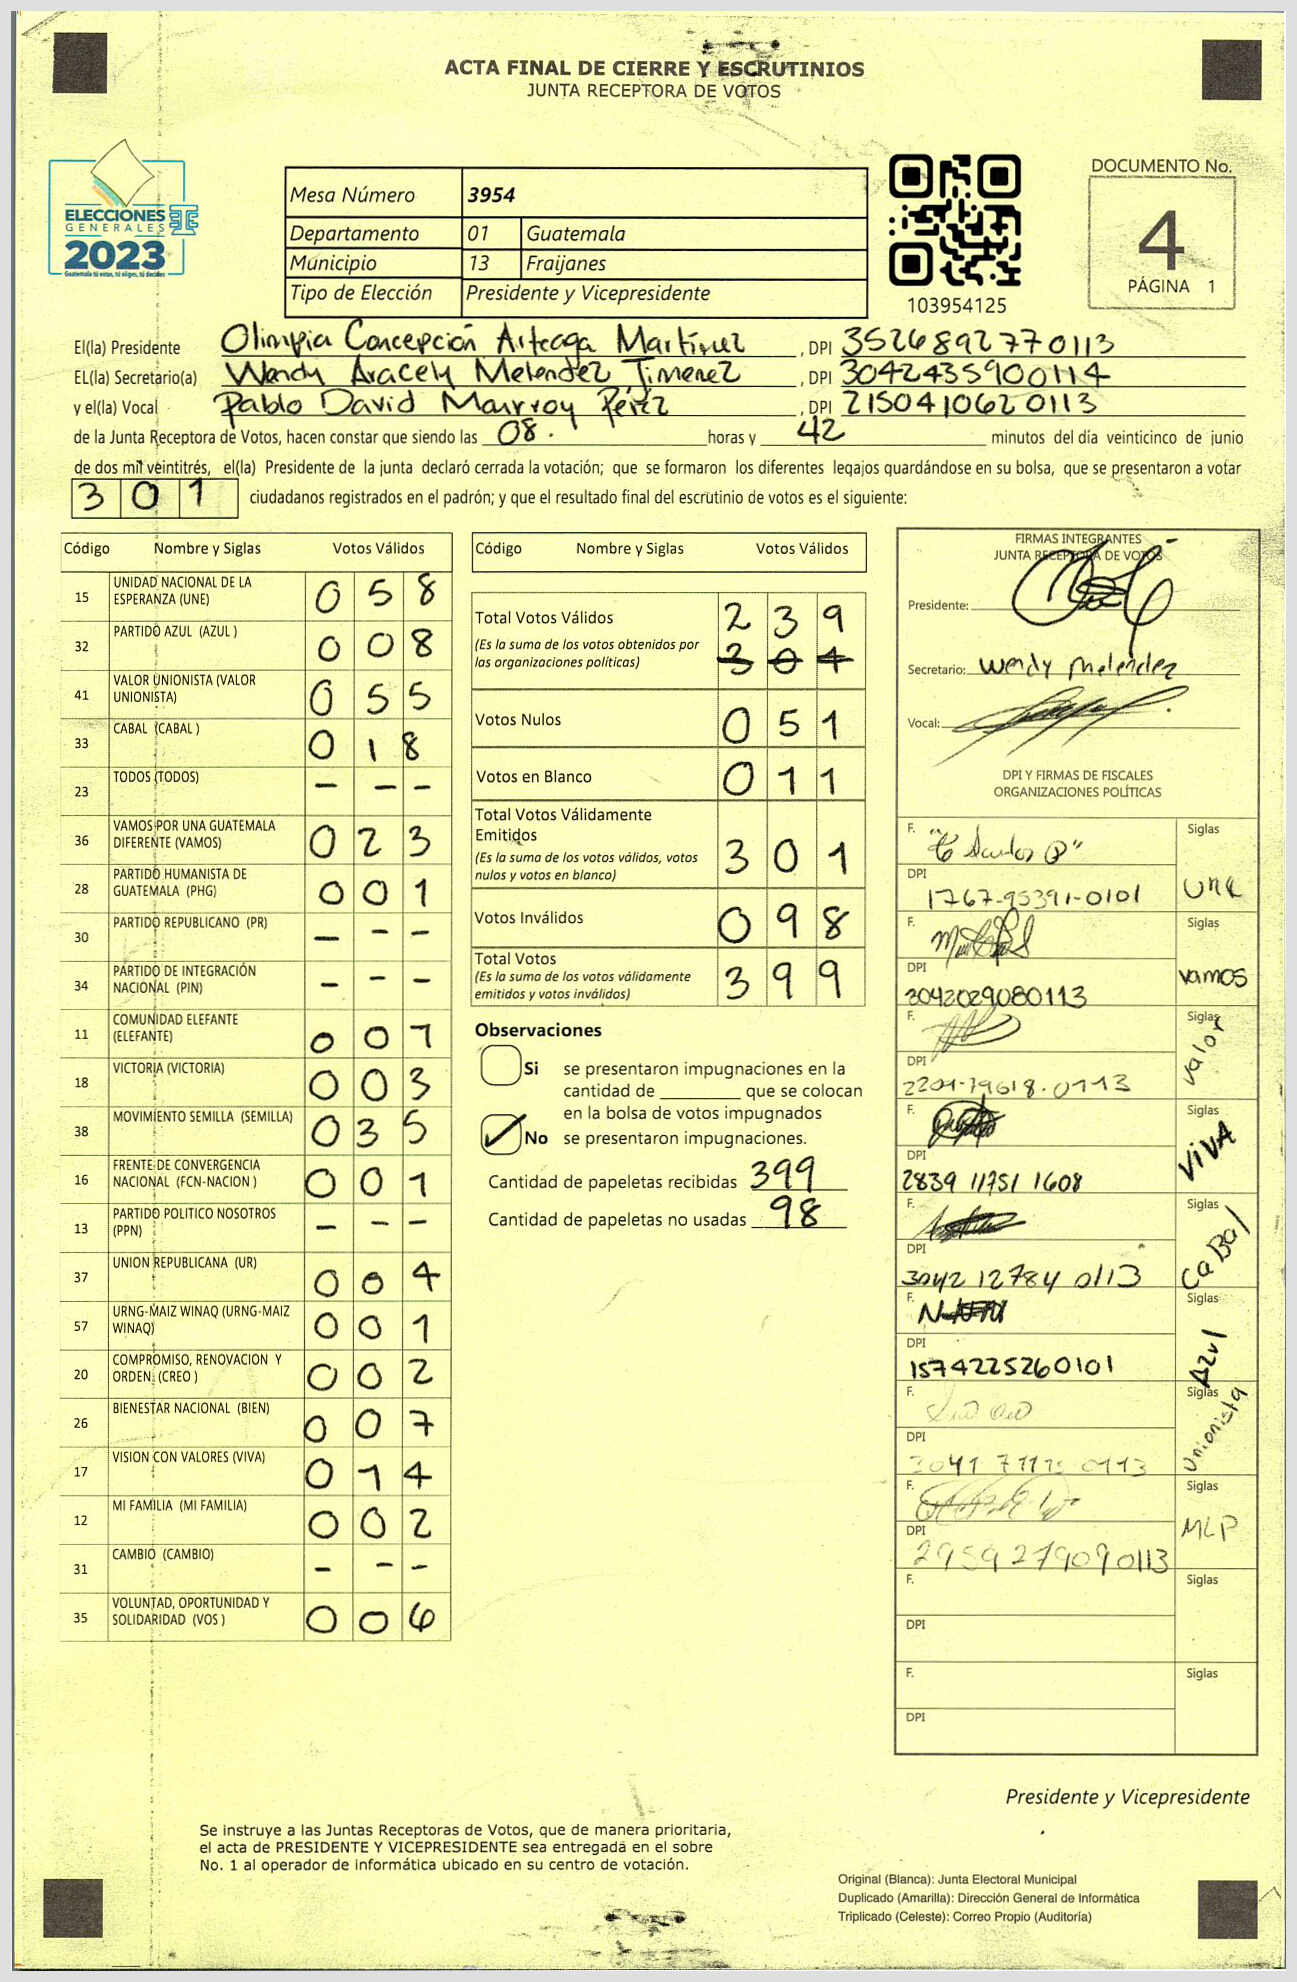 ACTA FINAL DE CIERRE Y ESCRUTINIOS
JUNTA RECEPTORA DE VOTOS
ELECCIONES
GENERALES
2023
Guatemala tú votas, tú eliges, tú decides
Mesa Número 3954
Departamento 01 Guatemala
Municipio 13 Fraijanes
Tipo de Elección Presidente y Vicepresidente
103954125
DOCUMENTO No.
4
PÁGINA 1
El(la) Presidente Olimpia Concepción Arteaga Martínez , DPI 3526892770113
EL(la) Secretario(a) Wendy Aracely Melendez Jimenez , DPI 3042435900114
y el(la) Vocal Pablo David Marroy Pérez , DPI 2150410620113
de la Junta Receptora de Votos, hacen constar que siendo las 08. horas y 42 minutos del día veinticinco de junio
de dos mil veintitrés, el(la) Presidente de la junta declaró cerrada la votación; que se formaron los diferentes legajos guardándose en su bolsa, que se presentaron a votar
301 ciudadanos registrados en el padrón; y que el resultado final del escrutinio de votos es el siguiente:
Código Nombre y Siglas Votos Válidos
15 UNIDAD NACIONAL DE LA ESPERANZA (UNE) 0 5 8
32 PARTIDO AZUL (AZUL ) 0 0 8
41 VALOR UNIONISTA (VALOR UNIONISTA) 0 5 5
33 CABAL (CABAL ) 0 1 8
23 TODOS (TODOS) - - -
36 VAMOS POR UNA GUATEMALA DIFERENTE (VAMOS) 0 2 3
28 PARTIDO HUMANISTA DE GUATEMALA (PHG) 0 0 1
30 PARTIDO REPUBLICANO (PR) - - -
34 PARTIDO DE INTEGRACIÓN NACIONAL (PIN) - - -
11 COMUNIDAD ELEFANTE (ELEFANTE) 0 0 7
18 VICTORIA (VICTORIA) 0 0 3
38 MOVIMIENTO SEMILLA (SEMILLA) 0 3 5
16 FRENTE DE CONVERGENCIA NACIONAL (FCN-NACION ) 0 0 1
13 PARTIDO POLITICO NOSOTROS (PPN) - - -
37 UNION REPUBLICANA (UR) 0 0 4
57 URNG-MAIZ WINAQ (URNG-MAIZ WINAQ) 0 0 1
20 COMPROMISO, RENOVACION Y ORDEN. (CREO ) 0 0 2
26 BIENESTAR NACIONAL (BIEN) 0 0 7
17 VISION CON VALORES (VIVA) 0 1 4
12 MI FAMILIA (MI FAMILIA) 0 0 2
31 CAMBIO (CAMBIO) - - -
35 VOLUNTAD, OPORTUNIDAD Y SOLIDARIDAD (VOS ) 0 0
Código Nombre y Siglas Votos Válidos
Total Votos Válidos 2 3 9
(Es la suma de los votos obtenidos por
las organizaciones políticas) 3 0 1
Votos Nulos 0 5 1
Votos en Blanco 0 1 1
Total Votos Válidamente
Emitidos
(Es la suma de los votos válidos, votos
nulos y votos en blanco) 3 0 1
Votos Inválidos 0 9 8
Total Votos
(Es la suma de los votos válidamente
emitidos y votos inválidos) 3 9 9
Observaciones
Si se presentaron impugnaciones en la
cantidad de ________ que se colocan
en la bolsa de votos impugnados
No se presentaron impugnaciones.
Cantidad de papeletas recibidas 399
Cantidad de papeletas no usadas 98
FIRMAS INTEGRANTES
JUNTA RECEPTORA DE VOTOS
Presidente:
Secretario: Wendy Melendez
Vocal:
DPI Y FIRMAS DE FISCALES
ORGANIZACIONES POLÍTICAS
F. Siglas
DPI 1767-95391-0101 UNE
F. Siglas
DPI 3042029080113 vamos
F. Siglas
DPI 2201-79618-0113 Valor
F. Siglas
DPI 2839 11751 1608 VIVA
F. Siglas
DPI 3042 12784 0113 CaBal
F. Siglas
DPI 1574225260101 Azul
F. Siglas
DPI Unionista
F. Siglas
DPI 2959279090113 MLP
F. Siglas
DPI
F. Siglas
DPI
Presidente y Vicepresidente
Se instruye a las Juntas Receptoras de Votos, que de manera prioritaria,
el acta de PRESIDENTE Y VICEPRESIDENTE sea entregada en el sobre
No. 1 al operador de informática ubicado en su centro de votación.
Original (Blanca): Junta Electoral Municipal
Duplicado (Amarilla): Dirección General de Informática
Triplicado (Celeste): Correo Propio (Auditoría)